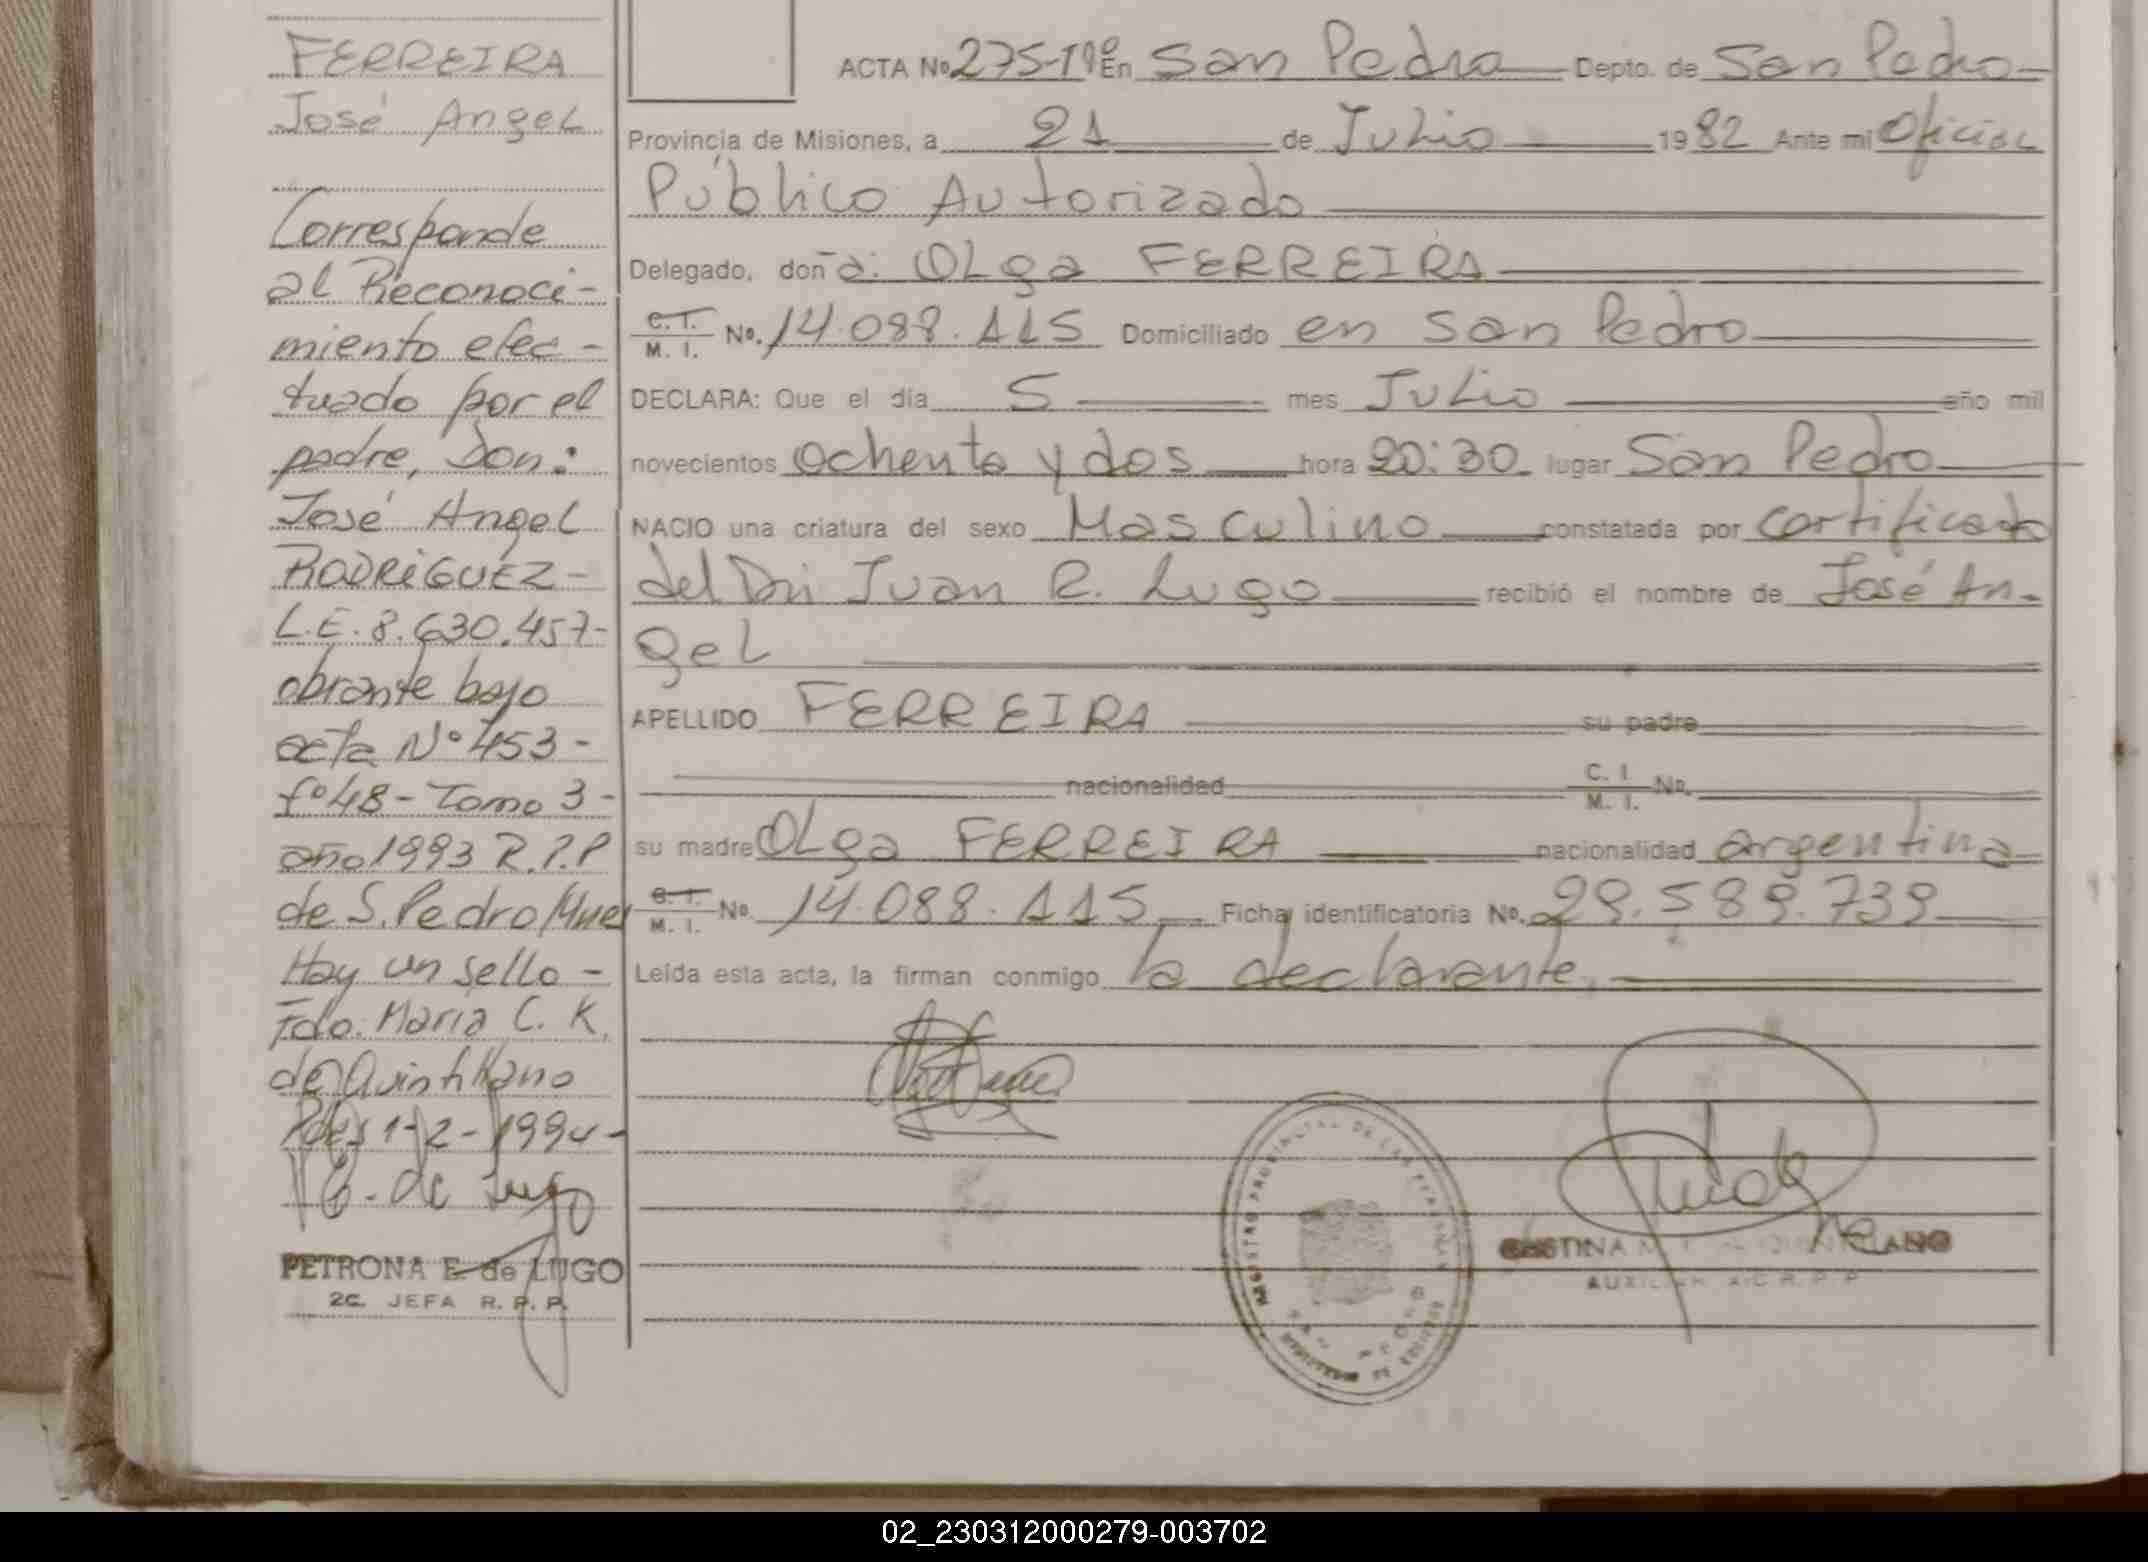 FERREIRA
José Angel
Corresponde
al Reconoci-
miento efec-
tuado por el
padre, Don:
José Angel
RODRIGUEZ-
L.E. 8.630.457-
obrante bajo
acta Nº 453-
fº 48- Tomo 3-
año 1993 R.P.P
de S. Pedro Mnes
Hay un sello-
Fdo. Maria C. K.
de Quintillano
Pdas 1-2-1994-
PETRONA E. de LUGO
2C. JEFA R. P. P.
ACTA No 275-Tº En San Pedro Depto. de San Pedro
Provincia de Misiones, a 21 de Julio 1982 Ante mi Oficial
Público Autorizado
Delegado, doña: OLga FERREIRA
C. I. M. I. No. 14.088.115 Domiciliado en San Pedro
DECLARA: Que el día 5 mes Julio año mil
novecientos ochenta y dos hora 20:30 lugar San Pedro
NACIO una criatura del sexo Masculino constatada por certificado
del Dr. Juan R. Lugo recibió el nombre de José An-
gel
APELLIDO FERREIRA su padre
nacionalidad C. I M. I. No.
su madre OLga FERREIRA nacionalidad argentina
C. I. M. I. No. 14.088.115 Ficha identificatoria No. 29.589.739
Leída esta acta, la firman conmigo la declarante.
AUXILIAR R. P. P
02_230312000279-003702